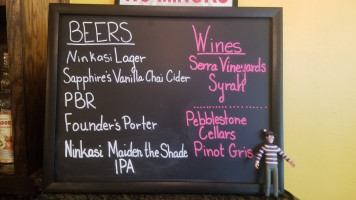 NO MINORS
BEERS
Ninkasi Lager
Sapphire's Vanilla Chai Cider
PBR
Founder's Porter
Ninkasi Maiden the Shade
IPA
Wines
Serra Vineyards
Syrah
Pebblestone
Cellars
Pinot Gris